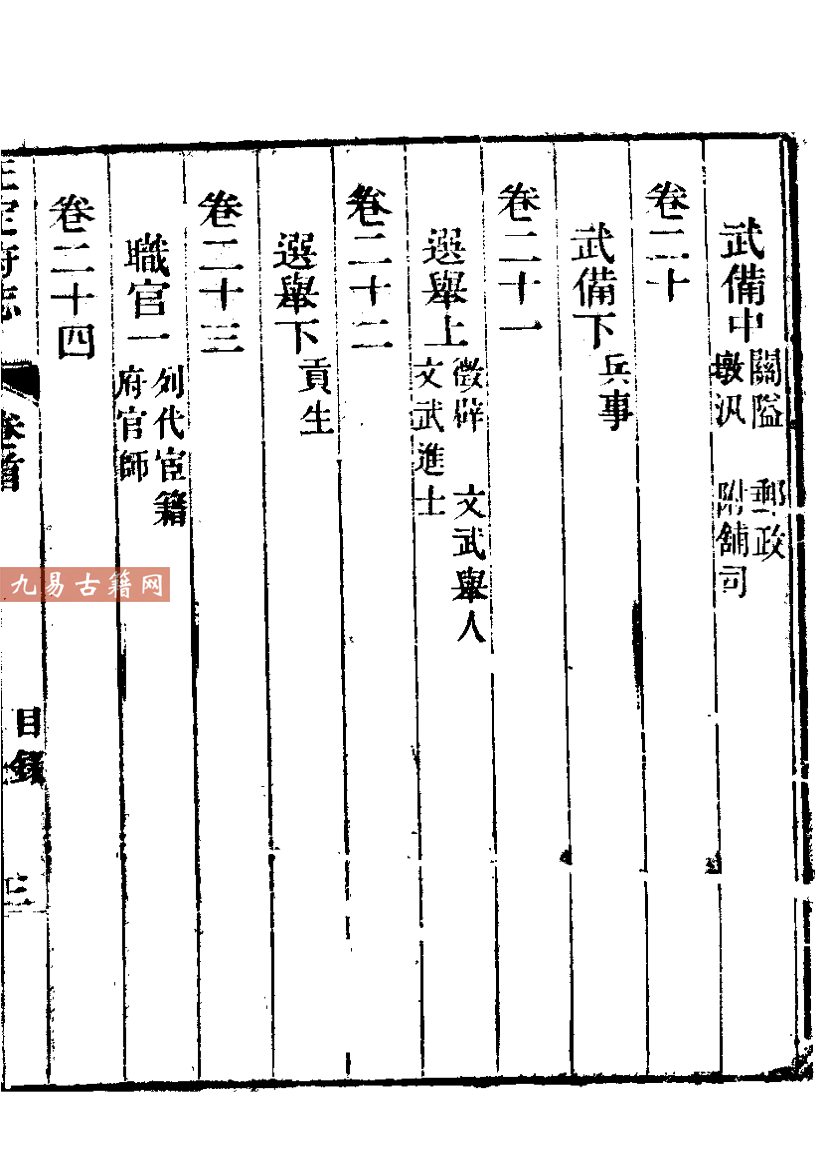 武備中 關隘 郵政
墩汛 附舖司
卷二十
武備下 兵事
卷二十一
選舉上 徵辟 文武舉人
文武進士
卷二十二
選舉下 貢生
卷二十三
職官一 列代宦籍
府官師
卷二十四
正定府志 卷首 目錄 三
九易古籍网